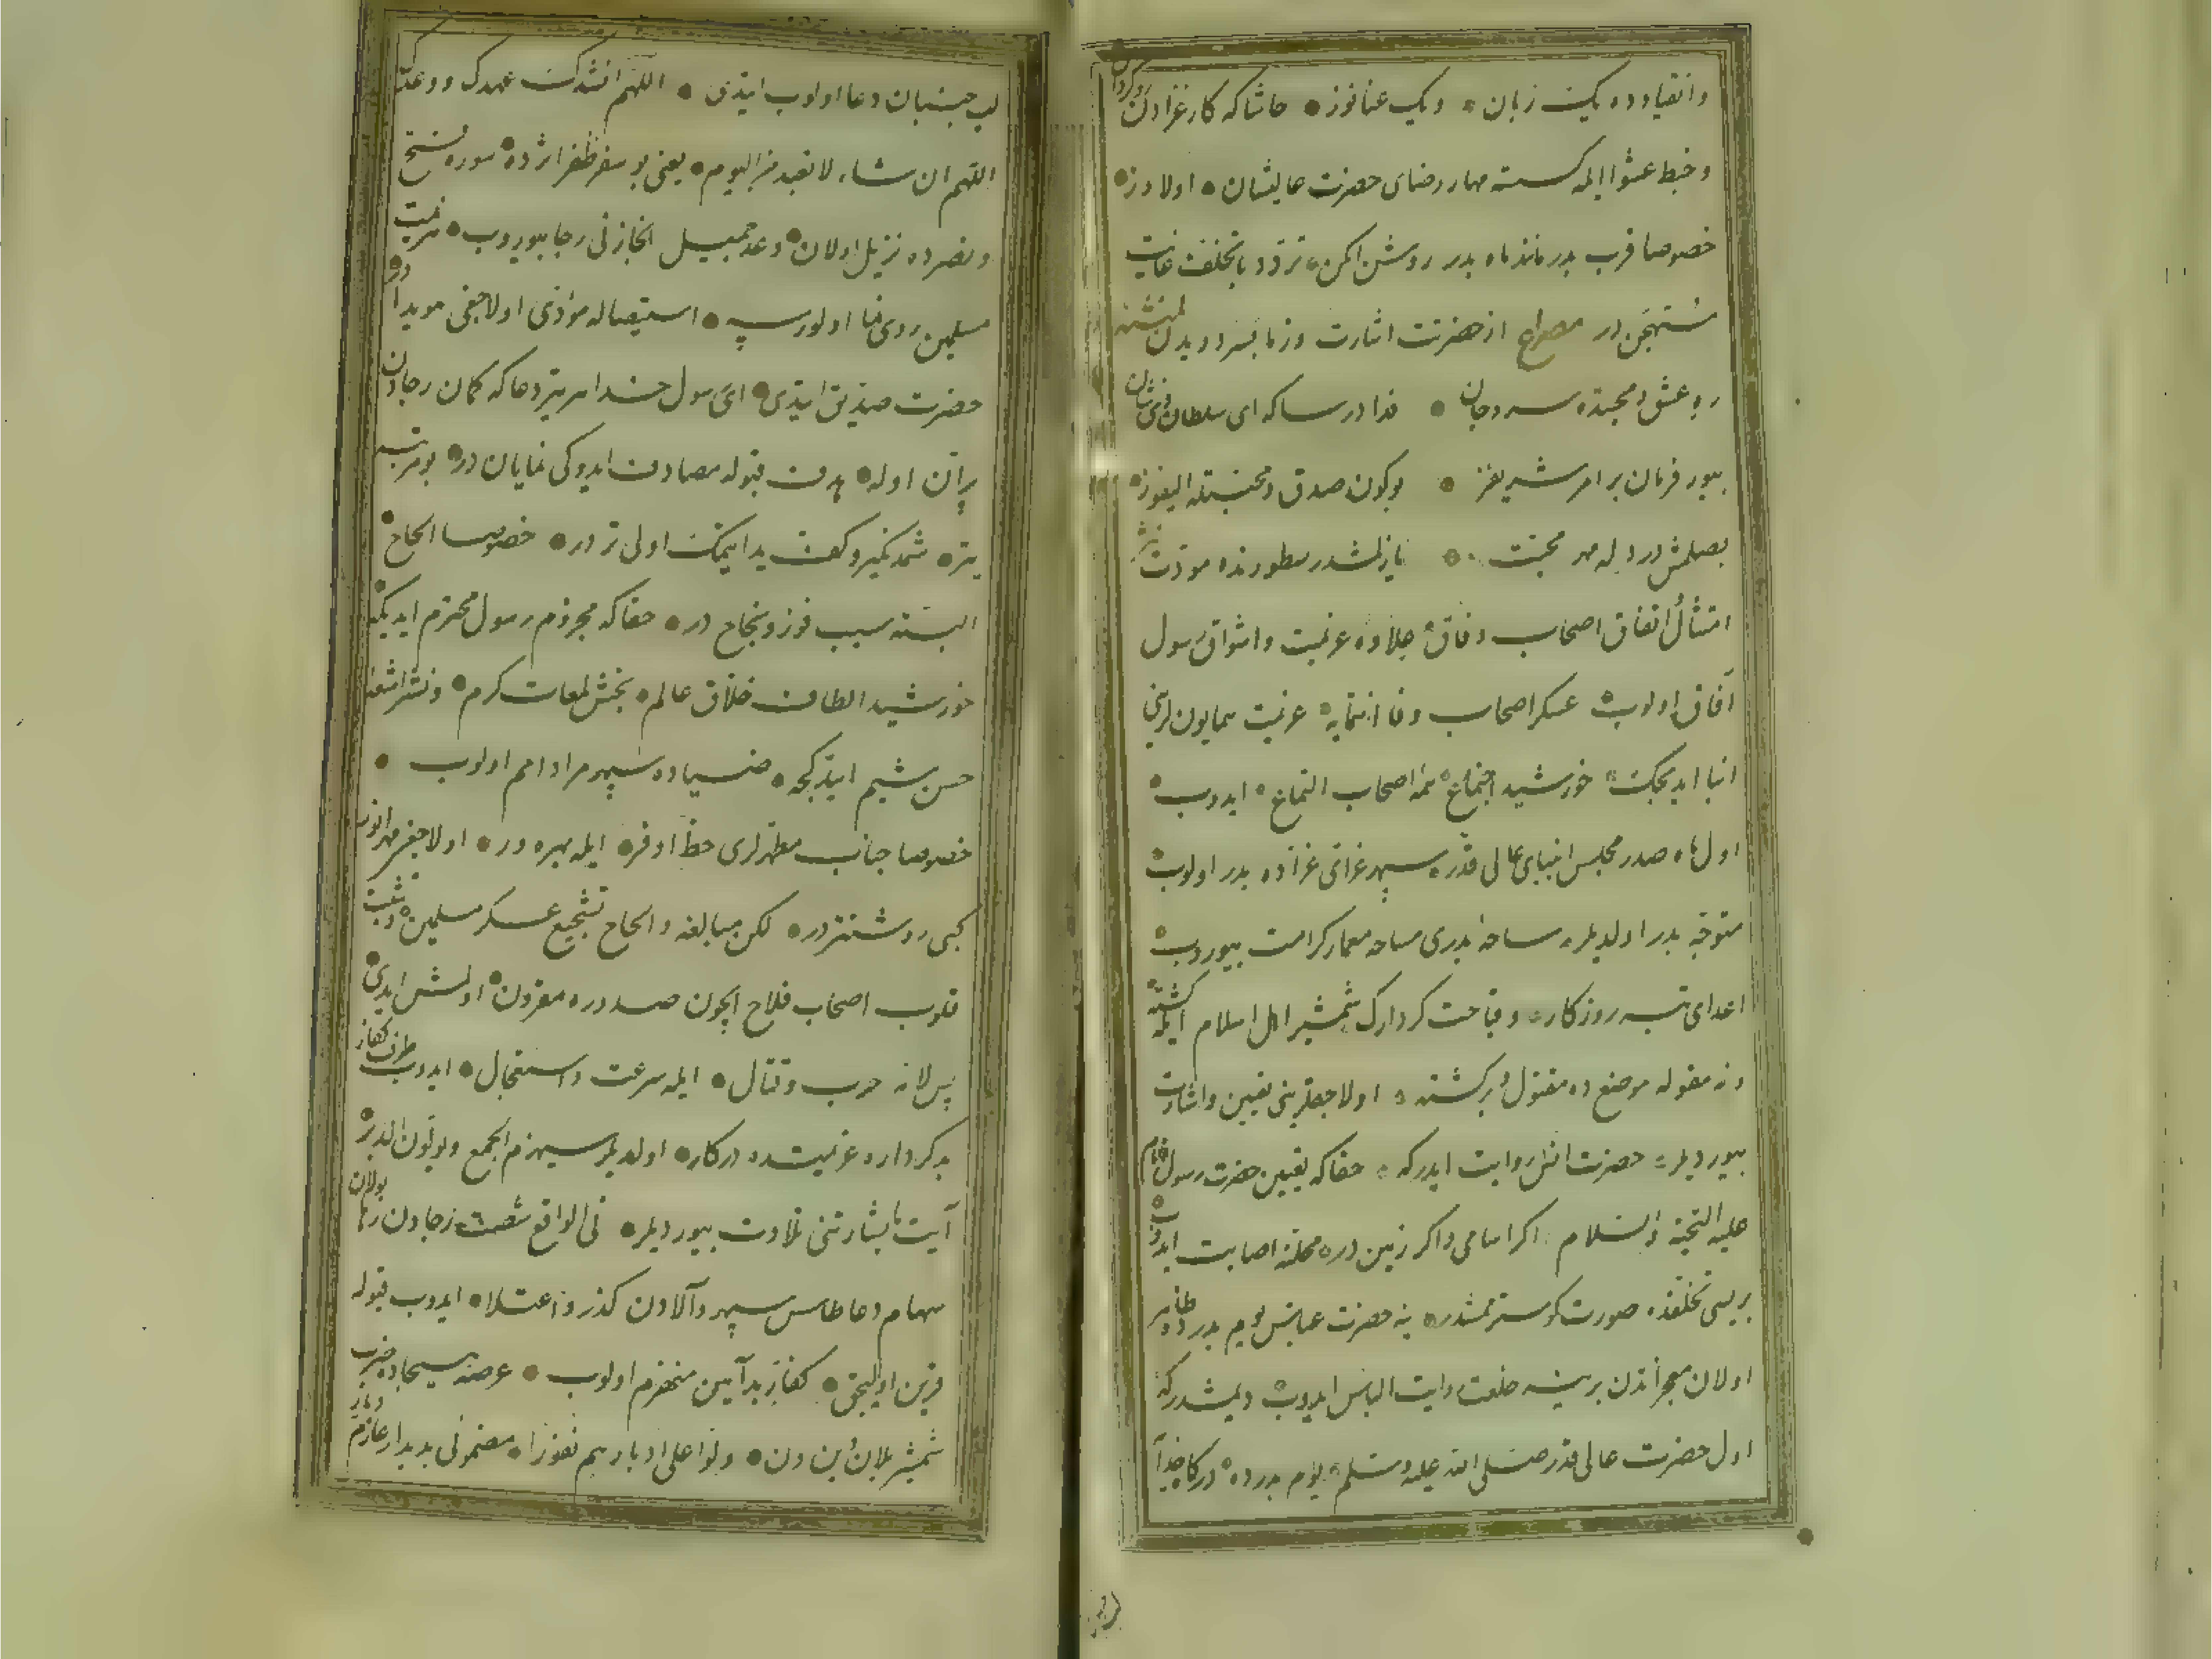 وانقیادده یک زبان و یک عنانوز حاشا که کار غزادن روکردان
وخبط عشوا ایله کسسته مهار رضای حضرت عالیشان اولاوز
خصوصا قرب بدر مانند ماه بدر روشن اکن تردد یا تخلف غایت
مستهجن در مصراع از حضرتت اشارت وز ما بسر دویدن
ره عشق ومحبتده سر وجان فدا در ساکه ای سلطان ذی شان
بیور فرمان بر امر شریفز بوکون صدق ومحبتله الیفوز
بصلمش در دله مهر محبت یازلمشدر سطورنده مودت
امتثال اتفاق اصحاب وفاق جلاده عزیمت واشواق رسول
آفاق اولوب عسکر اصحاب وفا انتمایه عزیمت همایون لرینی
انبا ایدیجک خورشید اجتماع نمه اصحاب التماع ایدوب
اول ماه صدر مجلس انبیای عالی قدر سپهر غزای غزاده بدر اولوب
متوجه بدر اولدیلر ساحه بدری مساحه معمار کرامت بیوروب
اعدای تبه روزکار وقباحت کردارک شمشیر اهل اسلام ایله کشته
ونه مقوله موضع ده مقتول وبرکشته اولاجقلرینی تعیین واشارت
بیوردیلر حضرت انس روایت ایدرکه حقا که تعیین حضرت رسول انام
علیه التحیة والسلام اکر اسامی واکر زمین دره محلنه اصابت ایدوب
بریسی تخلفده صورت کوسترمشدر ینه حضرت عباس یوم بدرده ظاهر
اولان معجزاتدن برینه خلعت روایت الباس ایدوب دیمشدرکه
اول حضرت عالی قدر صلی الله علیه وسلم یوم بدرده درکاه خدایه
لب جنبان دعا اولوب ایتدی اللهم انشدک عهدک ووعدک
اللهم ان شاء لا تعبد بعد الیوم یعنی بو سفر ظفر اثرده سوره فتح
ونصرده نزیل اولان وعد جمیل انجازنی رجا بیوروب هزیمت
مسلمین روی نما اولورسه استیصاله مؤدی اولاجغی هویدا در
حضرت صدیق ایتدی ای رسول خدا هر تیر دعا که کمان رجادن
پران اوله هدف قبوله مصادف ایدوکی نمایان در بو مرتبه
یتر شمدیکیرو کف ید ایتمک اولی تر در خصوصا الحاح
البته سبب فوز ونجاح در حقا که مجزوم رسول محترم ایدیکه
خورشید الطاف خلاق عالم بخش لمعات کرم ونشر اشعه
حسن شیم ایتدکجه ضیاده سپهر مراد اعم اولوب
خصوصا جناب مطهرلری حظ اوفر ایله بهره ور اولاجغی مهر انور
کبی روشنتر در لکن مبالغه والحاح تشجیع عسکر مسلمین وتثبیت
قلوب اصحاب فلاح ایچون صدوره مقرون اولمش ایدی
پس لانه حرب وقتال ایله سرعت واستعجال ایدوب طرف کفار
بدکرداره عزیمتده درکار اولدیلر سیهزم الجمع ویولون الدبر
آیت بابشارتنی تلاوت بیوردیلر فی الواقع شصت رجادن رها بولان
سهام دعا طاس سپهر والادن کذر واعتلا ایدوب قبوله
قرین اولیجق کفار بدآیین منهزم اولوب عرصه هیجاده ضرب
شمشیر یلان دین دن ولوا علی ادبارهم نفورا مضمونی بدیدار عازم دیار